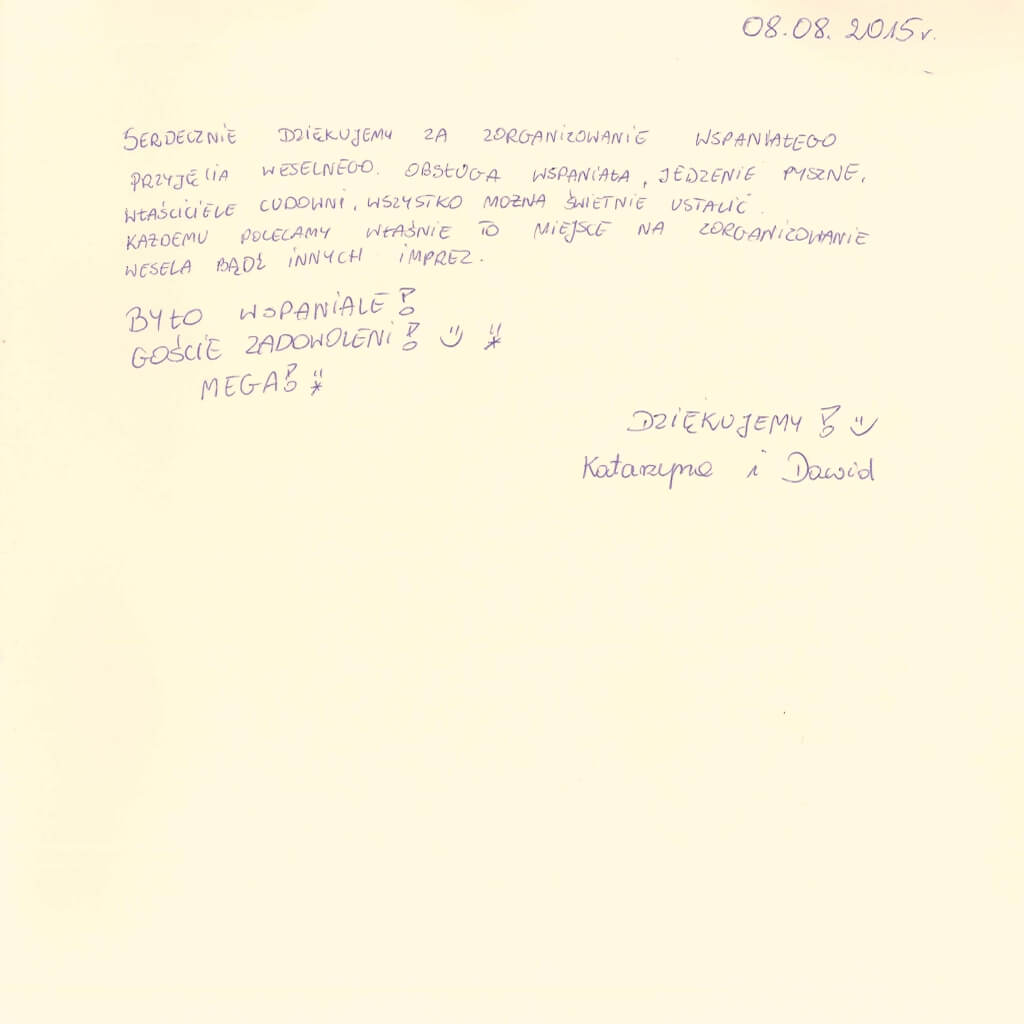 08.08.2015r.
SERDECZNIE DZIĘKUJEMY ZA ZORGANIZOWANIE WSPANIAŁEGO
PRZYJĘCIA WESELNEGO. OBSŁUGA WSPANIAŁA, JEDZENIE PYSZNE,
WŁAŚCICIELE CUDOWNI, WSZYSTKO MOŻNA ŚWIETNIE USTALIĆ.
KAŻDEMU POLECAMY WŁAŚNIE TO MIEJSCE NA ZORGANIZOWANIE
WESELA BĄDŹ INNYCH IMPREZ.
BYŁO WSPANIALE!
GOŚCIE ZADOWOLENI! :) :*
MEGA! :*
DZIĘKUJEMY! :)
Katarzyna i Dawid